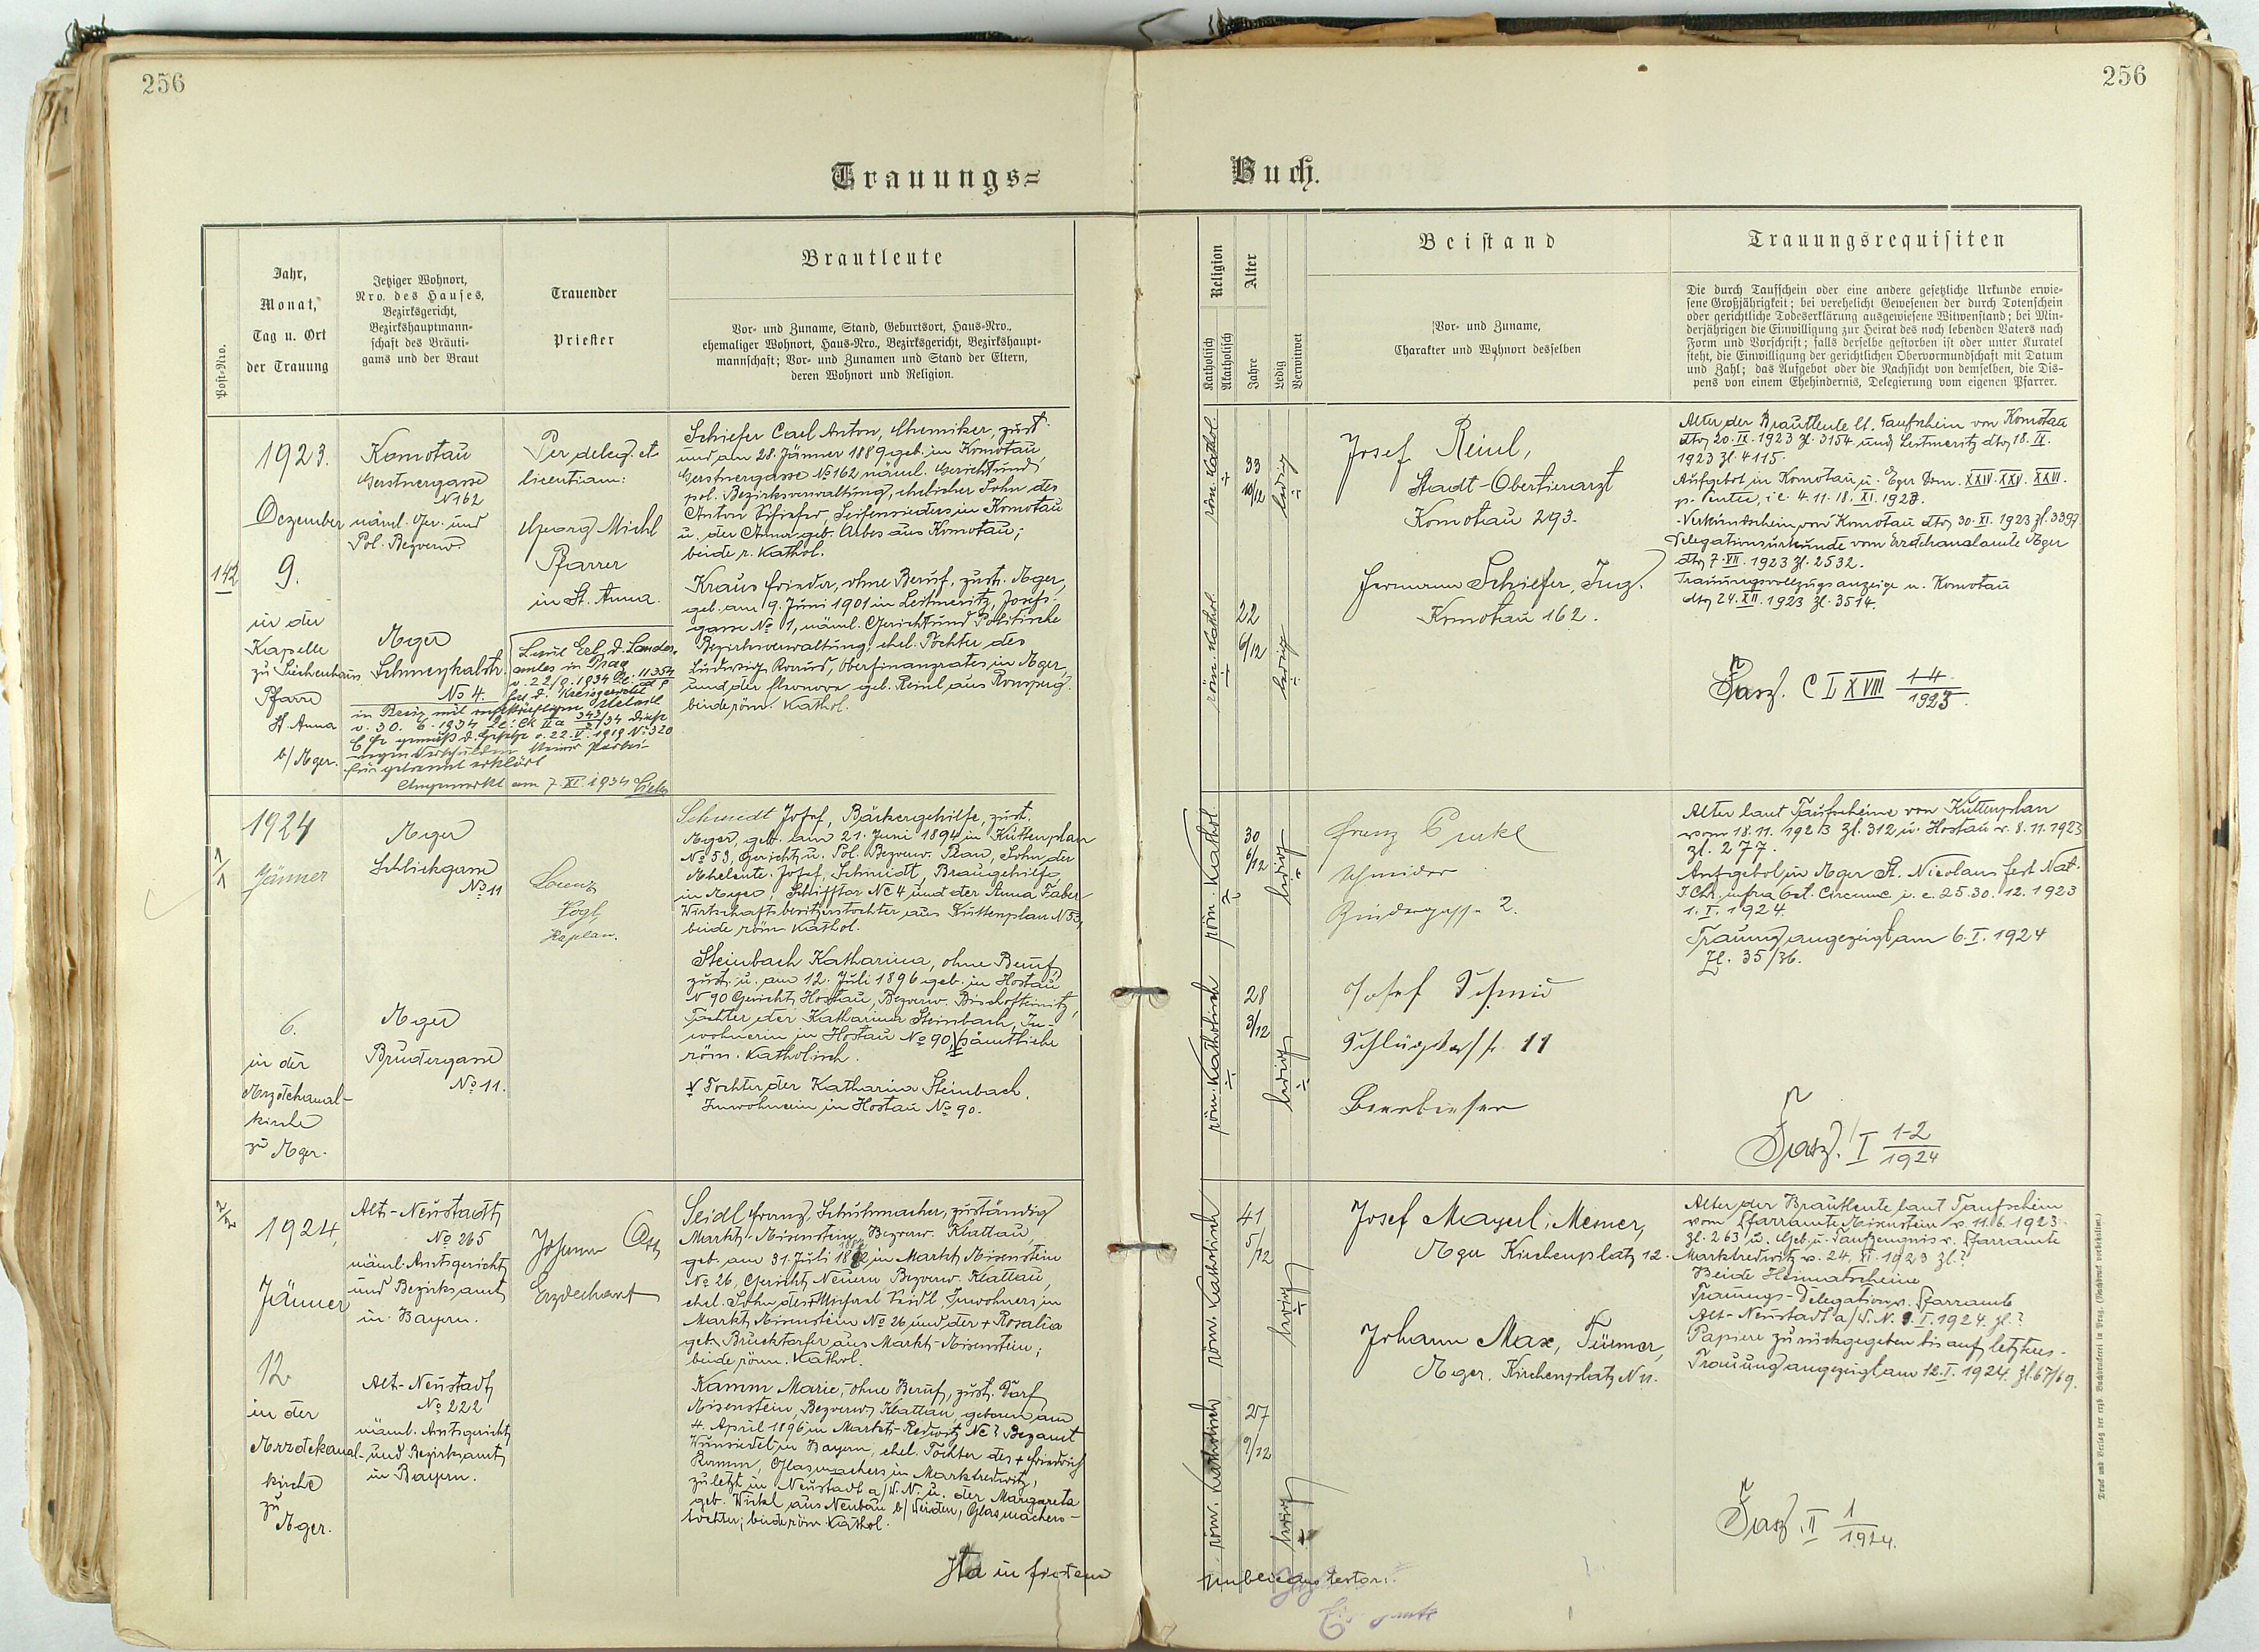 256
256
Trauungs=
Buch.
Post=Nro.
Jahr,
Monat,
Tag u. Ort
der Trauung
Jetziger Wohnort,
Nro. des Hauses,
Bezirksgericht,
Bezirkshauptmann=
schaft des Bräuti=
gams und der Braut
Trauender
Priester
Brautleute
Vor= und Zuname, Stand, Geburtsort, Haus=Nro.,
ehemaliger Wohnort, Haus=Nro., Bezirksgericht, Bezirkshaupt=
mannschaft; Vor= und Zunamen und Stand der Eltern,
deren Wohnort und Religion.
Religion
Katholisch
Akatholisch
Alter
Jahre
Ledig
Verwitwet
Beistand
Vor= und Zuname,
Charakter und Wohnort desselben
Trauungsrequisiten
Die durch Taufschein oder eine andere gesetzliche Urkunde erwie=
sene Großjährigkeit; bei verehelicht Gewesenen der durch Totenschein
oder gerichtliche Todeserklärung ausgewiesene Witwenstand; bei Min=
derjährigen die Einwilligung zur Heirat des noch lebenden Vaters nach
Form und Vorschrift; falls derselbe gestorben ist oder unter Kuratel
steht, die Einwilligung der gerichtlichen Obervormundschaft mit Datum
und Zahl; das Aufgebot oder die Nachsicht von demselben, die Dis=
pens von einem Ehehindernis, Delegierung vom eigenen Pfarrer.
142
1923.
Dezember
9.
in der
Kapelle
zu Siechenhaus
Pfarre
St. Anna
b/Ager.
Komotau
Gerstnergasse
N 162
näml. Ger. und
Pol. Bezverw.
Ager
Schmeykalstr.
No 4.
Per deleg. et
licentiam:
Georg Michl
Pfarrer
in St. Anna.
Laut Erl. d. Landes-
amtes in Prag
v. 22./9. 1934 Zl. 11354
in Brüx mit rechtskräftigem Urteil
v. 30. 6. 1934 Zl: Ck IIa 343/34 diese
Ehe gemäß d. Gesetze v. 22. V. 1919 No 320
wegen Verschulden keiner Partei
für getrennt erklärt
Angemerkt am 7. XI. 1934
Schiefer Carl Anton, Chemiker, zust.
und am 28. Jänner 1889 geb. in Komotau,
Gerstnergasse No 162 näml. Gericht und
pol. Bezirksverwaltung, ehelicher Sohn des
Anton Schiefer, Seifensieders in Komotau
u. der Anna geb. Arbes aus Komotau;
beide r. Kathol.
Kraus Frieda, ohne Beruf, zust. Ager,
geb. am 9. Juni 1901 in Leitmeritz, Josefs-
gasse No 1, näml. Gericht und Politische
Bezirksverwaltung, ehel. Tochter des
Ludwig Kraus, Oberfinanzrates in Ager,
und der Eleonora geb. Reinl aus Ronsperg.
beide röm. Kathol.
röm. Kathol.
33
10/12
ledig
röm. Kathol.
22
6/12
ledig
Josef Reinl,
Stadt-Obertierarzt
Komotau 293.
Hermann Schiefer, Ing.
Komotau 162.
Alter der Brautleute lt. Taufschein von Komotau
dto 20. IX. 1923 Zl. 3154 und Leitmeritz dto 18. IX.
1923 Zl. 4115.
Aufgebot in Komotau u. Eger Dom. XXIV. XXV. XXVI.
p. Pente, i.e. 4. 11. 18. XI. 1923.
Verkündschein von Komotau dto 30. XI. 1923 Zl. 3397
Delegationsurkunde vom Erzdechanalamte Ager
dto 7. XII. 1923 Zl. 2532.
Trauungsvollzugsanzeige n. Komotau
dto 24. XII. 1923 Zl. 3514.
Fasz. C L X VIII 1-4/1923.
1/1
1924
Jänner
6.
in der
Arzdechanal-
kirche
zu Ager.
Ager
Schlickgasse
No 11
Ager
Brudergasse
No 11.
Lorenz
Vogl,
Kaplan.
Schmidt Josef, Bäckergehilfe, zust.
Ager, geb. am 21. Juni 1894 in Kuttenplan
No 53, Gericht u. Pol. Bezverw. Plan, Sohn der
Aheleute Josef Schmidt, Braugehilfe
in Ager, Schifftor No 4 und der Anna Faber
Wirtschaftsbesitzerstochter aus Kuttenplan N 53,
beide röm. Kathol.
Steinbach Katharina, ohne Beruf,
zust. u. am 12. Juli 1896 geb. in Hostau
N 90 Gericht Hostau, Bezverw. Bischofteinitz,
Tochter der Katharina Steinbach, In-
wohnerin in Hostau No 90, sämtliche
röm. Katholisch.
Tochter der Katharina Steinbach,
Inwohnerin in Hostau No 90.
röm. Kathol.
30
6/12
ledig
röm. Katholisch
28
3/12
ledig
Franz Purkl
Schneider
Rindergasse 2.
Josef Schmid
11
Alter laut Taufscheine von Kuttenplan
vom 18. 11. 1923 Zl. 312 u. Hostau v. 8. 11. 1923
Zl. 277.
Aufgebot in Ager St. Nicolaus fest Nat.
I. Chr. infra Oct. Circumc i. e. 25. 30. 12. 1923
1. I. 1924.
Trauung angezeigt am 6. I. 1924
Zl. 35/36.
Fasz. I 1-2/1924
2/2
1924,
Jänner
12.
in der
Arzdekanal-
kirche
zu
Ager.
Alt-Neustadt
No 265
näml. Amtsgericht
und Bezirksamt
in Bayern.
Alt-Neustadt
No 222
näml. Amtsgericht
und Bezirksamt
in Bayern.
Johann
Erzdechant
Seidl Franz, Schuhmacher, zuständig
Markt-Aisenstein, Bezverw. Klattau,
geb. am 31. Juli 1882 in Markt Aisenstein
No 26, Gericht Neuern Bezverw. Klattau,
ehel. Sohn des Michael Seidl, Inwohners in
Markt Aisenstein No 26, und der + Rosalia
geb. Brucktorfer aus Markt-Aisenstein;
beide röm. Kathol.
Kamm Marie, ohne Beruf, zust. Dorf
Aisenstein, Bezverw. Klattau, geboren am
4. April 1896 in Markt-Redwitz No? Bezamt
Wunsiedel in Bayern, ehel. Tochter des + Friedrich
Kamm, Glasmachers in Marktredwitz,
zuletzt in Neustadt a/W.N. u. der Margareta
geb. Winkl aus Neubau b/Weiden, Glasmachers-
tochter; beide röm. Kathol.
röm. Katholisch
41
5/12
ledig
röm. Katholisch
27
9/12
ledig
Josef Mayerl, Mesner,
Ager Kirchenplatz 12.
Johann Max, Türmer,
Ager. Kirchenplatz N 11.
Alter der Brautleute laut Taufschein
vom Pfarramte Aisenstein v. 11. 6. 1923
Zl. 263 u. Geb. u. Taufzeugnis v. Pfarramte
Marktredwitz v. 24. XI. 1923 Zl.?
Beide Heimatscheine
Trauungs-Delegation v. Pfarramte
Alt-Neustadt a/W.N. 9. I. 1924. Zl.?
Papiere zurückgegeben bis auf letztere.
Trauung angezeigt am 12. I. 1924. Zl. 67/69.
Fasz. II 1/1924.
Ita in fidem
testor.
Druck und Verlag der erzb. Buchdruckerei in Prag. (Nachdruck vorbehalten.)